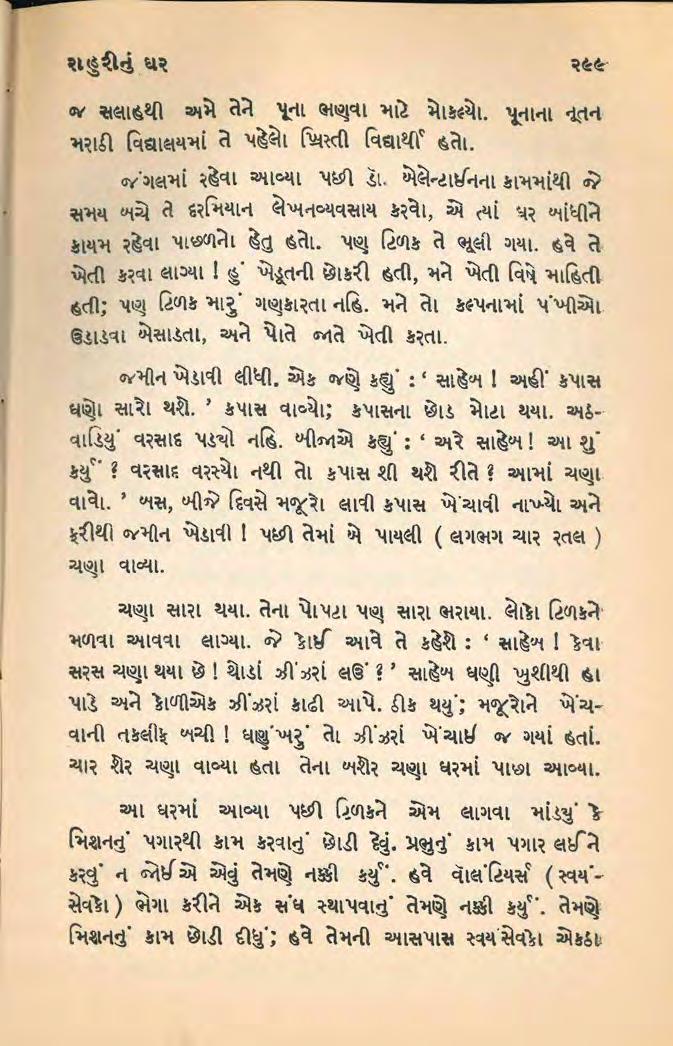 રાહુરીનું ઘર ૨૯૯
જ સલાહથી અમે તેને પૂના ભણવા માટે મોકલ્યો. પૂનાના નૂતન
મરાઠી વિદ્યાલયમાં તે પહેલો ખ્રિસ્તી વિદ્યાર્થી હતો.
જંગલમાં રહેવા આવ્યા પછી ડૉ. બેલેન્ટાઈનના કામમાંથી જે
સમય બચે તે દરમિયાન લેખનવ્યવસાય કરવો, એ ત્યાં ઘર બાંધીને
કાયમ રહેવા પાછળનો હેતુ હતો. પણ ટિળક તે ભૂલી ગયા. હવે તે
ખેતી કરવા લાગ્યા ! હું ખેડૂતની છોકરી હતી, મને ખેતી વિષે માહિતી
હતી; પણ ટિળક મારું ગણકારતા નહિ. મને તો કલ્પનામાં પંખીઓ
ઉડાડવા બેસાડતા, અને પોતે જાતે ખેતી કરતા.
જમીન ખેડાવી લીધી. એક જણે કહ્યું : ‘ સાહેબ ! અહીં કપાસ
ઘણો સારો થશે. ’ કપાસ વાવ્યો; કપાસના છોડ મોટા થયા. અઠ-
વાડિયું વરસાદ પડ્યો નહિ. બીજાએ કહ્યું : ‘ અરે સાહેબ ! આ શું
કર્યું ? વરસાદ વરસ્યો નથી તો કપાસ શી થશે રીતે ? આમાં ચણા
વાવો. ’ બસ, બીજે દિવસે મજૂરો લાવી કપાસ ખેંચાવી નાખ્યો અને
ફરીથી જમીન ખેડાવી ! પછી તેમાં બે પાયલી ( લગભગ ચાર રતલ )
ચણા વાવ્યા.
ચણા સારા થયા. તેના પોપટા પણ સારા ભરાયા. લોકો ટિળકને
મળવા આવવા લાગ્યા. જે કોઈ આવે તે કહેશે : ‘ સાહેબ ! કેવા
સરસ ચણા થયા છે ! થોડાં ઝીંઝરાં લઉં ? ’ સાહેબ ઘણી ખુશીથી હા
પાડે અને કોળીએક ઝીંઝરાં કાઢી આપે. ઠીક થયું; મજૂરોને ખેંચ-
વાની તકલીફ બચી ! ઘણુંખરું તો ઝીંઝરાં ખેંચાઈ જ ગયાં હતાં.
ચાર શેર ચણા વાવ્યા હતા તેના બશેર ચણા ઘરમાં પાછા આવ્યા.
આ ઘરમાં આવ્યા પછી ટિળકને એમ લાગવા માંડ્યું કે
મિશનનું પગારથી કામ કરવાનું છોડી દેવું. પ્રભુનું કામ પગાર લઈને
કરવું ન જોઈએ એવું તેમણે નક્કી કર્યું. હવે વૉલંટિયર્સ ( સ્વયં-
સેવકો ) ભેગા કરીને એક સંઘ સ્થાપવાનું તેમણે નક્કી કર્યું. તેમણે
મિશનનું કામ છોડી દીધું; હવે તેમની આસપાસ સ્વયંસેવકો એકઠા